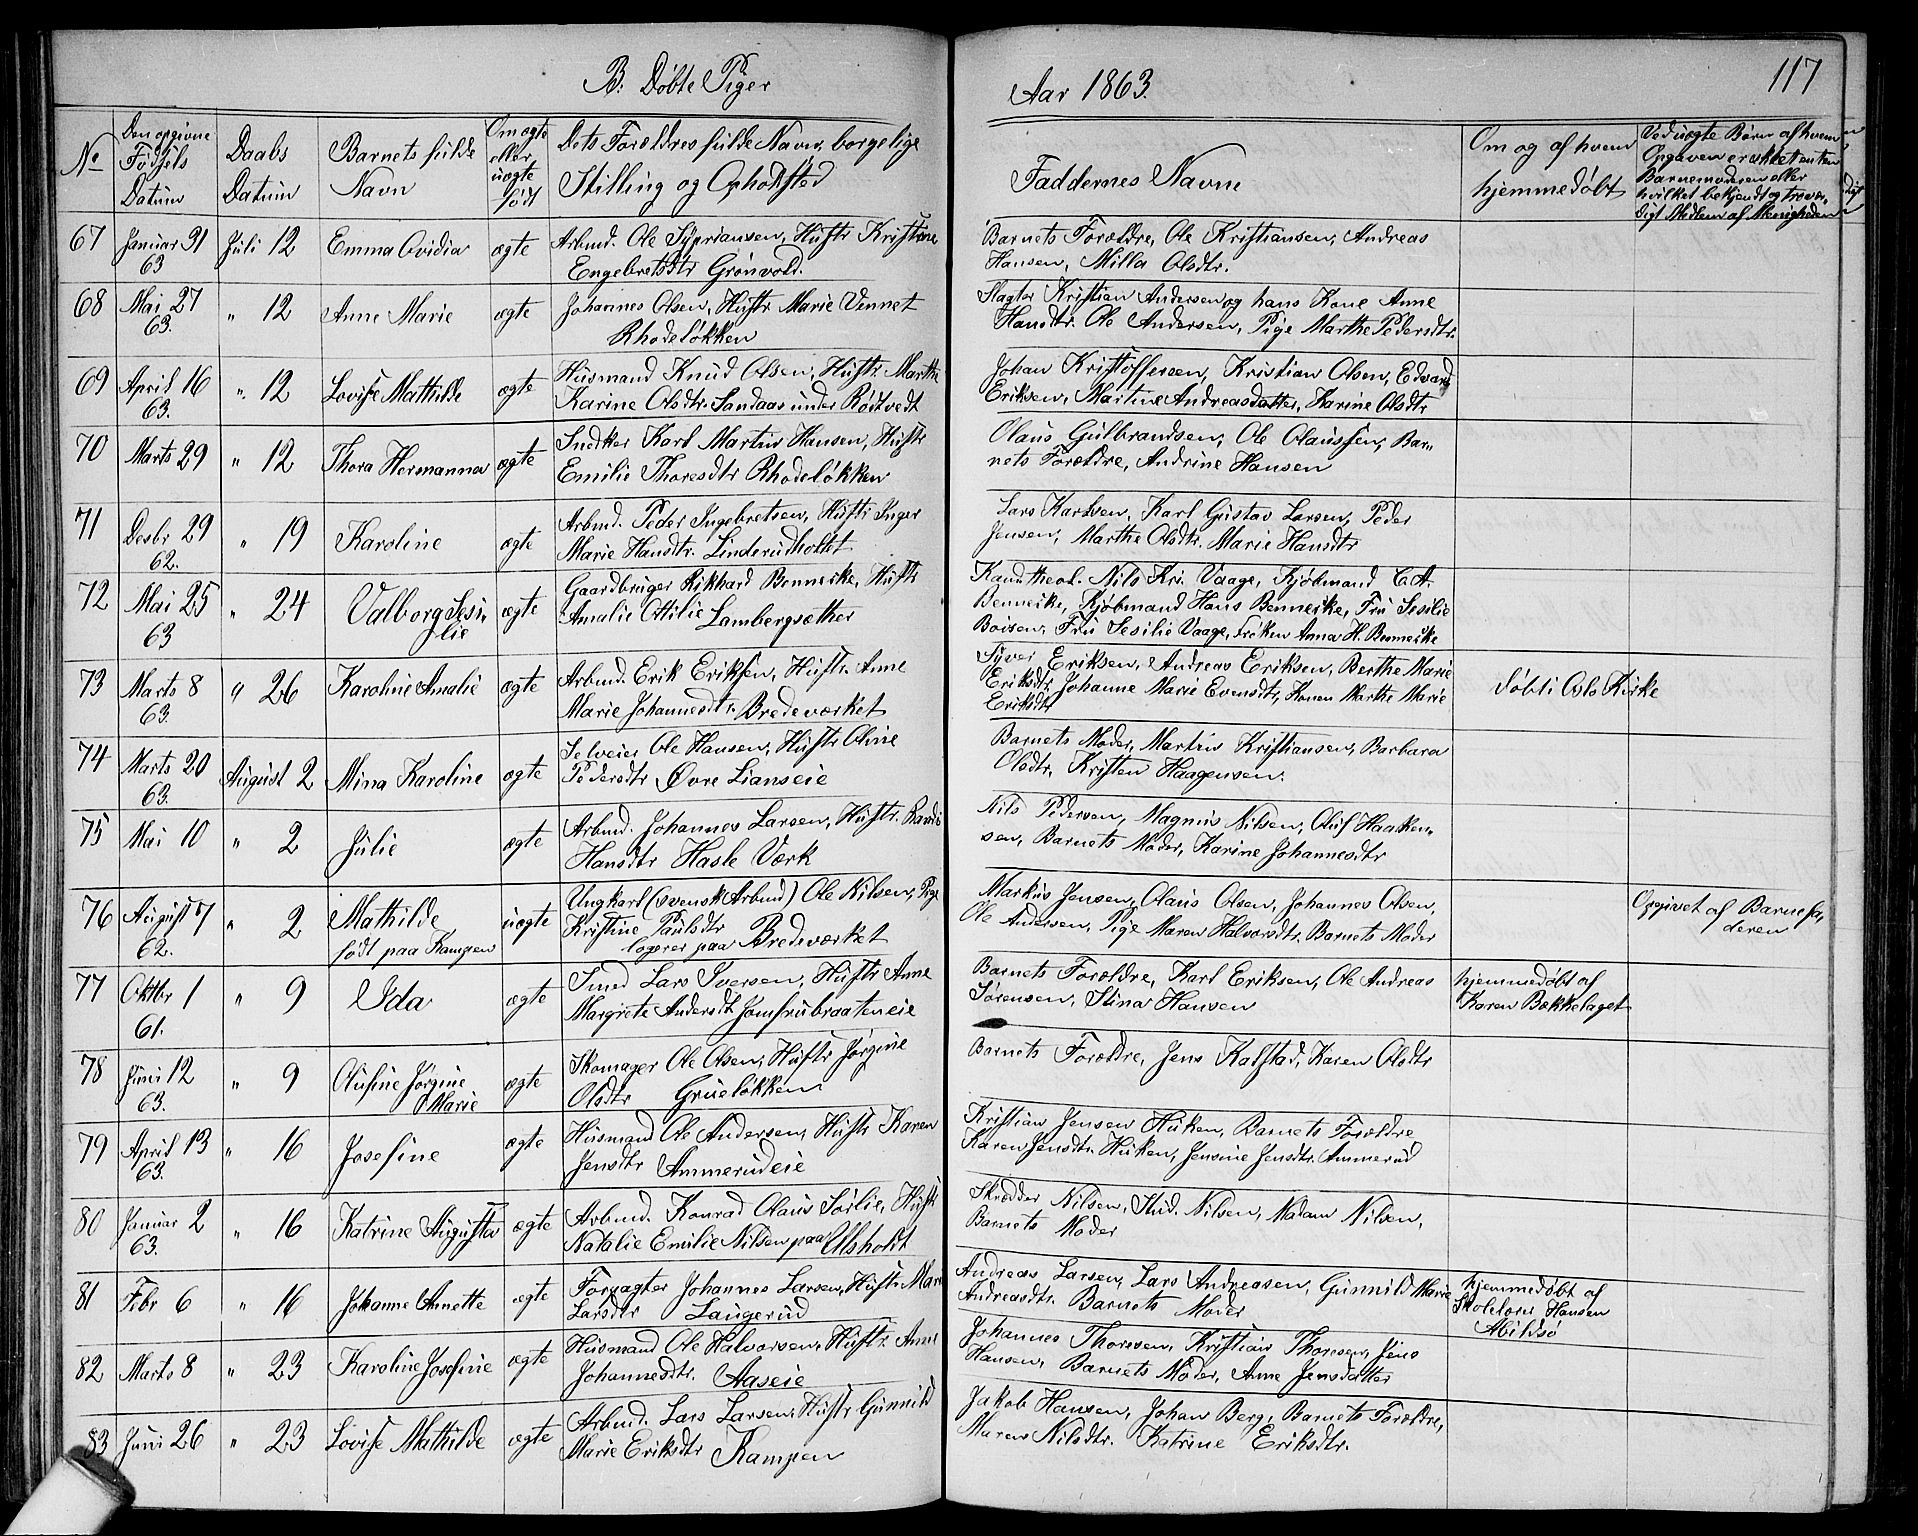 B. Døbte Piger
Aar 1863.
117
No
Den opgivne Fødsels Datum
Daabs Datum
Barnets fulde Navn
Om ægte eller uægte født
Dets Forældres fulde Navn, borgelige Stilling og Opholdsted
Faddernes Navne
Om og af hvem hjemmedøbt
Ved uægte Børn af hvem Opgaven er skeet enten Barnemoderen eller hvilket bekjendt og troverdigt Medlem af Menigheden
67 Januar 31 63 Juli 12 Emma Ovidia ægte Arbmd. Ole Sypriansen, Hustr Kristine
Engebretsdtr Grønvold.
Barnets Forældre, Ole Kristiansen, Andreas
Hansen, Milla Olsdtr.
68 Mai 27 63. " 12 Anne Marie ægte Johannes Olsen, Hustr Marie Vennet
Rhodeløkken
Slagter Kristian Andersen og hans Kone Anne
Hansdtr. Ole Andersen, Pige Marthe Pedersdtr.
69 April 16 63. " 12 Lovise Mathilde ægte Husmand Knud Olsen, Hustr. Marthe
Karine Olsdtr. Sandaas under Rødtvedt
Johan Kristoffersen, Kristian Olsen, Edvard
Eriksen, Martine Andreasdatter, Karine Olsdtr
70 Marts 29 " 12 Thora Hermanna ægte Snedker Karl Martin Hansen, Hustr
Emilie Thoresdtr Rhodeløkken
Olaus Gulbrandsen, Ole Olaussen, Bar-
nets Forældre, Andrine Hansen
71 Desbr 29 62. " 19 Karoline ægte Arbmd. Peder Ingebretsen, Hustr Inger
Marie Hansdtr. Linderudholtet
Lars Karlsen, Karl Gustav Larsen, Peder
Jensen, Marthe Olsdtr. Marie Hansdtr
72 Mai 25 63 " 24 Valborg Sesi-
lie ægte Gaardbruger Rikhard Benneike, Hustr
Amalie Ottilie Lambergsæther
Kand theol. Nils Kri. Vaage, Kjøbmand C. A.
Benneike, Kjøbmand Hans Benneike, Fru Sesilie
Boisen, Fru Sesilie Vaage, Frøken Anna H. Benneike
73 Marts 8 63. " 26 Karoline Amalie ægte Arbmd. Erik Eriksen, Hustr. Anne
Marie Johannesdtr. Bredeværket
Syver Eriksen, Andreas Eriksen, Berthe Marie
Eriksdtr, Johanne Marie Evensdtr, Konen Marthe Marie
Eriksdtr
døbt i Oslo Kirke
74 Marts 20 63. August 2 Mina Karoline ægte Selveier Ole Hansen, Hustr Oline
Pedersdtr Øvre Lianseie
Barnets Moder, Martin Kristiansen, Barbara
Olsdtr. Kristen Haagensen.
75 Mai 10 " 2 Julie ægte Arbmd. Johannes Larsen, Hustr. Randi
Hansdtr Hasle Værk
Nils Pedersen, Magnus Nilsen, Oluf Haaken-
sen, Barnets Moder, Karine Johannesdtr
76 August 17 62. " 2 Mathilde
født paa Kampen uægte Ungkarl (svensk Arbmd) Ole Nilsen, Pige
Kristine Paulsdtr
logerer paa Bredeværket
Markus Jensen, Olaus Olsen, Johannes Olsen,
Ole Andersen, Pige Maren Halvorsdtr. Barnets Moder
Opgivet af Barnefa-
deren
77 Oktbr 1 61. " 9 Ida ægte Smed Lars Iversen, Hustr Anne
Margrete Andersdtr Jomfrubraateneie
Barnets Forældre, Karl Eriksen, Ole Andreas
Sørensen, Stina Hansen
hjemmedøbt af
Karen Bækkelaget
78 Juni 12 63. " 9 Olufine Jørgine
Marie ægte Skomager Ole Olsen, Hustr Jørgine
Olsdtr Grueløkken
Barnets Forældre, Jens Kalstad, Karen Olsdtr
79 April 13 63. " 16 Josefine ægte Husmand Ole Andersen, Hustr Karen
Jensdtr Ammerudeie
Kristian Jensen Huken, Barnets Forældre
Karen Jensdtr. Huken, Jensine Jensdtr. Ammerud
80 Januar 2 63. " 16 Katrine Augusta ægte Arbmd. Konrad Olaus Sørlie, Hustr
Natalie Emilie Nilsen paa Ulsholdt
Skrædder Nilsen, Stud. Nilsen, Madam Nilsen,
Barnets Moder
81 Febr 6 " 16 Johanne Annette ægte Forpagter Johannes Larsen, Hustr. Mari
Larsdtr Laugerud
Andreas Larsen, Lars Andreasen, Gunnild Marie
Andreasdtr. Barnets Moder
hjemmedøbt af
Skolelærer Hansen
Abildsø
82 Marts 8 " 23 Karoline Josefine ægte Husmand Ole Halvorsen, Hustr. Anne
Johannesdtr. Aaseie
Johannes Thoresen, Kristian Thoresen, Jens
Hansen, Barnets Moder, Anne Jensdatter
83 Juni 26 " 23 Lovise Mathilde ægte Arbmd. Lars Larsen, Hustr Gunnild
Marie Eriksdtr Kampen
Jakob Hansen, Johan Berg, Barnets Forældre,
Maren Nilsdtr. Katrine Eriksdtr.